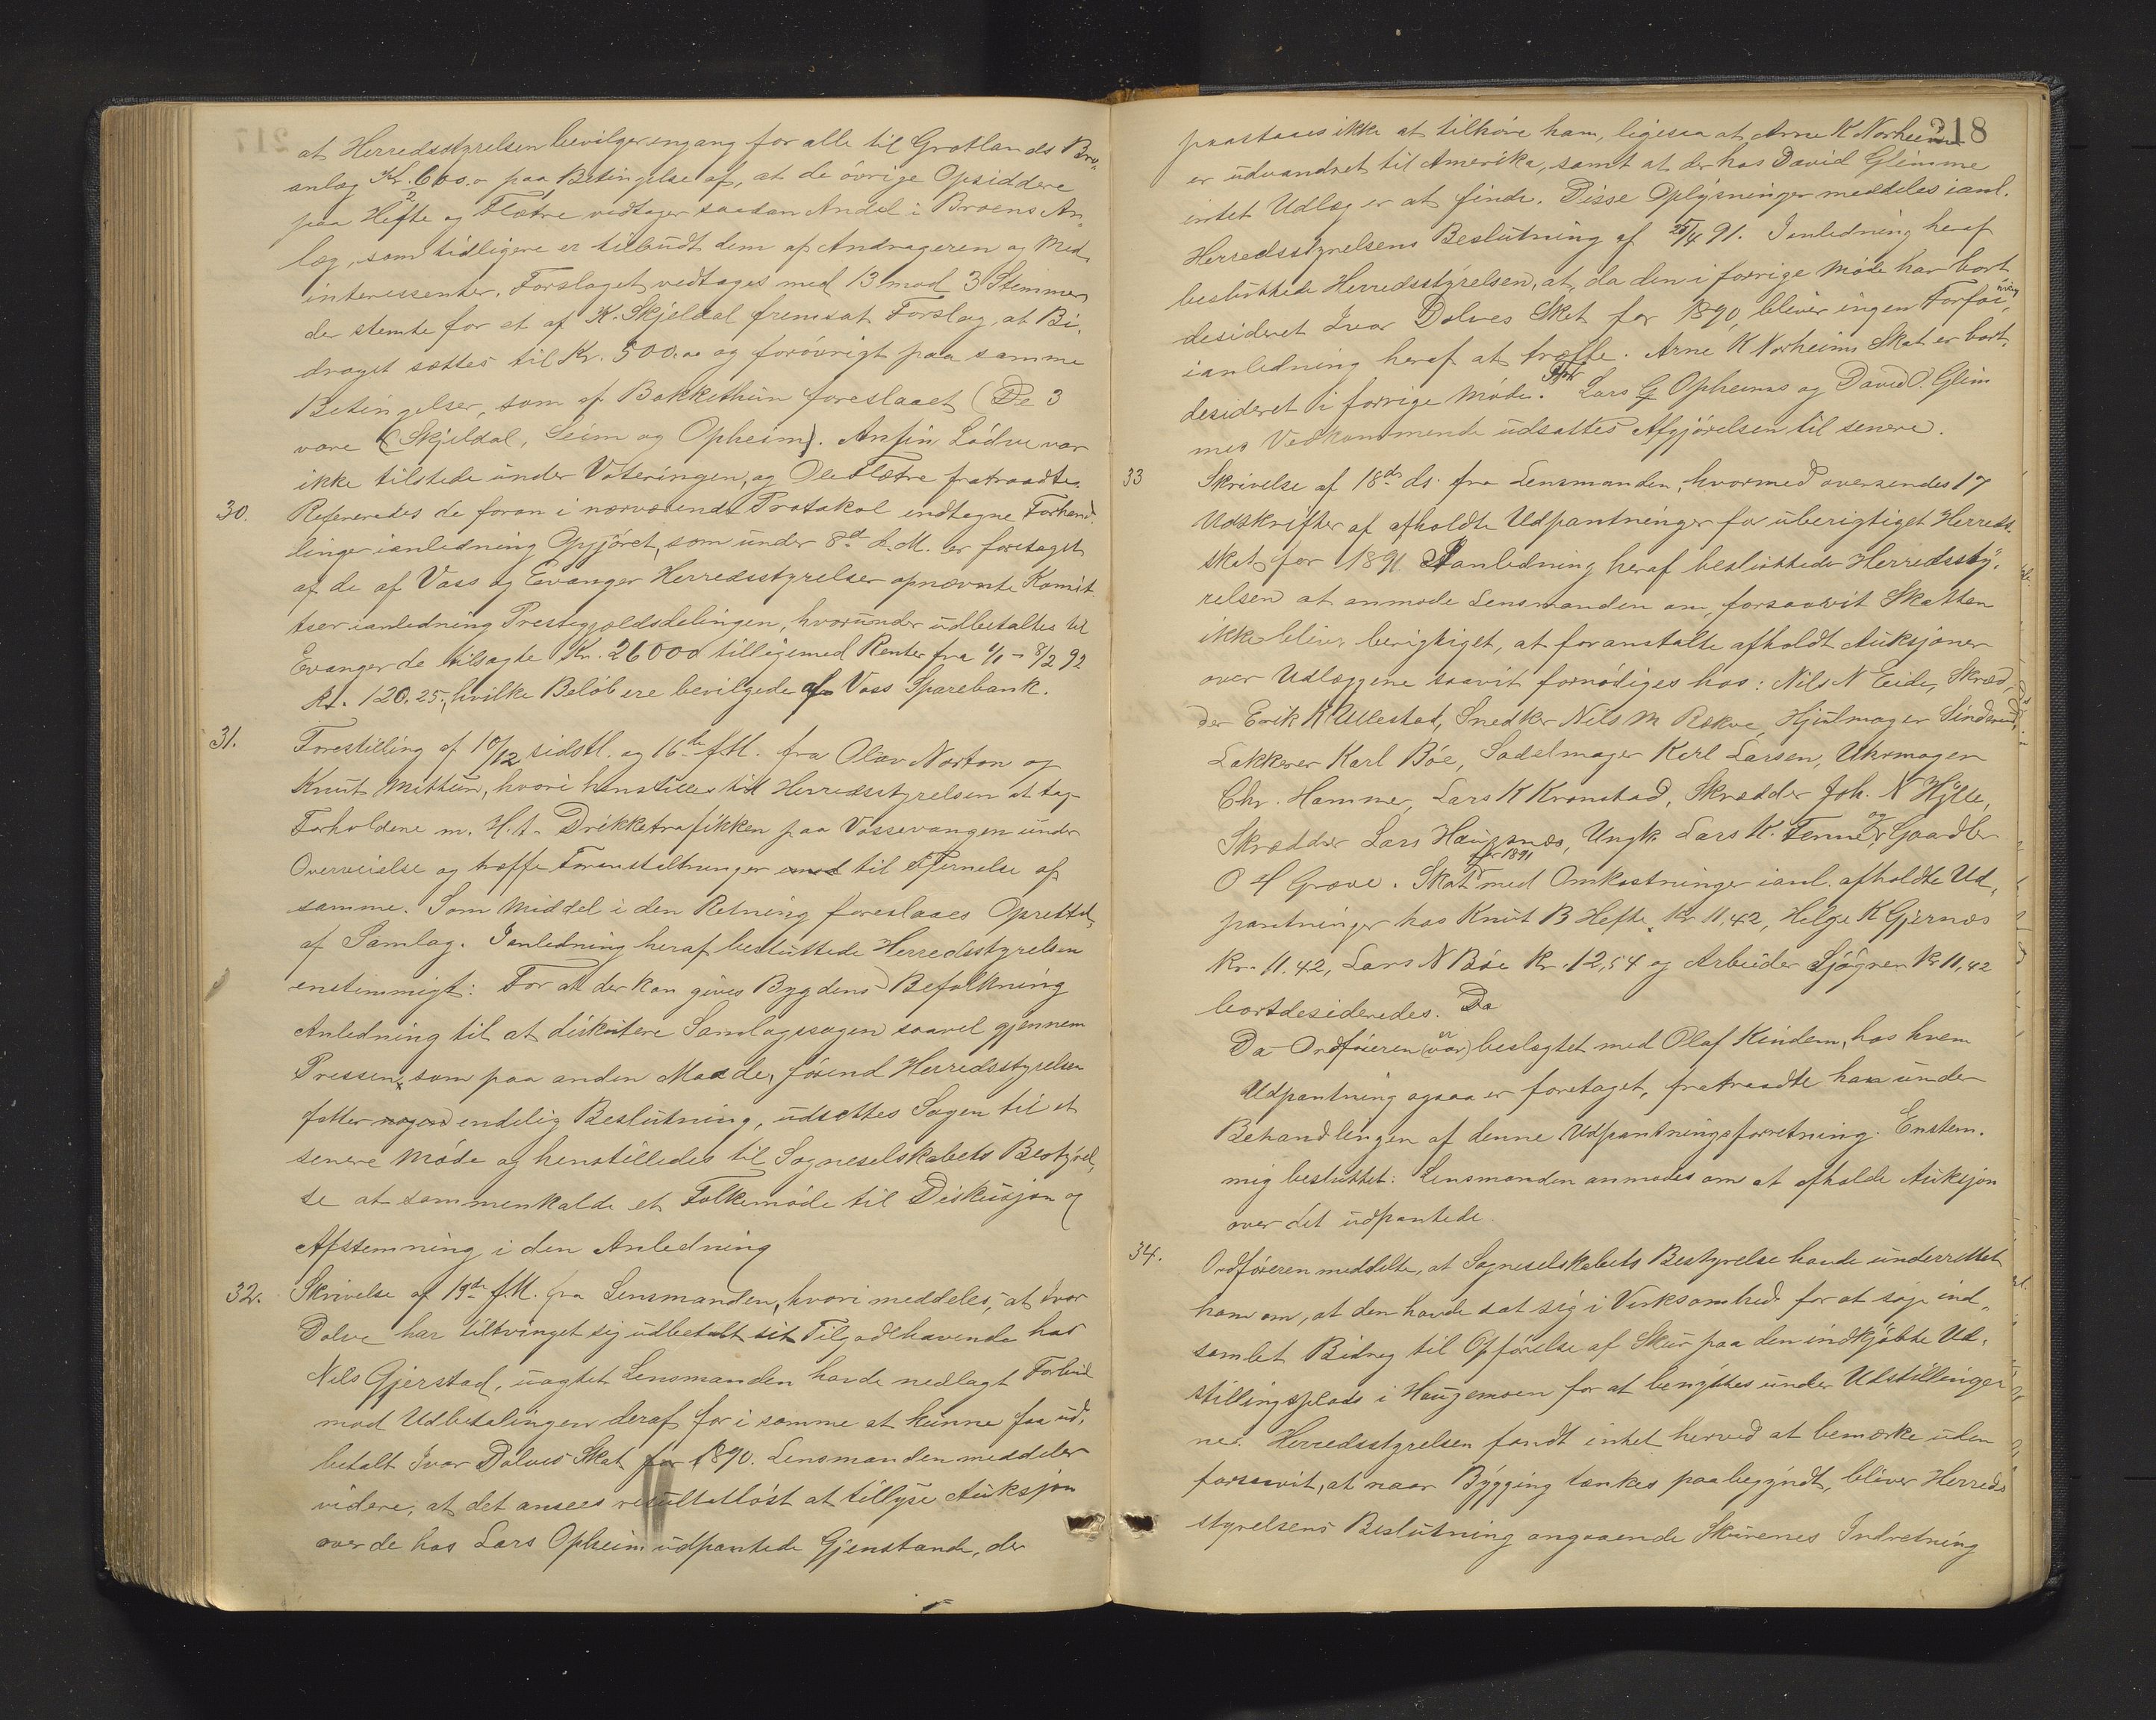 at Herredsstyrelsen bevilger engang for alle til Grotlands Bro-
anlæg Kr. 600.- paa Betingelse af, at de övrige Opsiddere
paa Hefte og Flætre vedtager saadan Andel i Broens An-
læg, som tidligere er tilbudt dem af Andrageren og Med-
interessenter. Forslaget vedtages med 13 mod 3 Stemmer,
der stemte for et af K. Skjeldal fremsat Forslag, at Bi-
draget sættes til Kr. 500.00 og forövrigt paa samme
Betingelser, som af Bakkethun foreslaaet (De 3
vare (Skjeldal, Seim og Opheim). Anfin Lödve var
ikke tilstede under Voteringen, og Ole Flætre fratraadte.
30. Refereredes de foran i nærværende Protokol indtagne Forhand-
linger ianledning Opgjöret, som under 8de d. M. er foretaget
af de af Voss og Evanger Herredsstyrelser opnævnte Komit-
teer ianledning Prestegjældsdelingen, hvorunder udbetaltes til
Evanger de tilsagte Kr. 26000 tilligemed Renter fra 1/1 - 8/2 92
Kr. 120.25, hvilke Belöb ere bevilgede af Voss Sparebank.
31. Forestilling af 10/12 sidstl. og 16de f.M. fra Olav Norton og
Knut Mittun, hvori henstilles til Herredsstyrelsen at tage
Forholdene m. H. t. Drikketrafikken paa Vossevangen under
Overveielse og træffe Foranstaltninger mod til Fjernelse af
samme. Som Middel i den Retning foreslaaes Oprettelse
af Samlag. Ianledning heraf besluttede Herredsstyrelsen
enstemmigt: For at der kan gives Bygdens Befolkning
Anledning til at diskutere Samlagssagen saavel gjennem
Pressen, som paa anden Maade, förend Herredsstyrelsen
fatter nogen endelig Beslutning, udsættes Sagen til et
senere Möde og henstilledes til Sogneselskabets Bestyrel-
se at sammenkalde et Folkemöde til Diskusjon og
Afstemning i den Anledning
32. Skrivelse af 19de f.M. fra Lensmanden, hvori meddeles, at Ivar
Dolve har tiltvinget sig udbetalt sit Tilgodehavende hos
Nils Gjerstad, uagtet Lensmanden havde nedlagt Forbud
mod Udbetalingen deraf for i samme at kunne faa ud-
betalt Ivar Dolves Skat for 1890. Lensmanden meddeler
videre, at det ansees resultatlöst at tillyse Auksjon
over de hos Lars Opheim udpantede Gjenstande, der
218
paastaaes ikke at tilhöre ham, ligesaa at Arne K Norheim
er udvandret til Amerika, samt at der hos David Glimme
intet Udlæg er at finde. Disse Oplysninger meddeles ianl.
Herredsstyrelsens Beslutning af 25/4 91. Ianledning heraf
besluttede Herredsstyrelsen, at, da den i forrige Möde har bort-
desideret Ivar Dolves Skat for 1890, bliver ingen Forföi-
ning
ianledning heraf at træffe. Arne K Norheims Skat er bort-
desideret i forrige Möde. For Lars G Opheims og David O. Glim
mes Vedkommende udsættes Afgjörelsen til senere.
33 Skrivelse af 18de ds. fra Lensmanden, hvormed oversendes 17
Udskrifter af afholdte Udpantninger for uberigtiget Herreds-
skat for 1891. Ianledning heraf besluttede Herredssty-
relsen at anmode Lensmanden om, forsaavit Skatten
ikke bliver berigtiget, at foranstalte afholdt Auksjoner
over Udlæggene saavit fornödiges hos: Nils N Eide, Skræd-
der Erik K Ullestad, Snedker Nils M Rekve, Hjulmager Sinderud,
Lakkerer Karl Böe, Sadelmager Karl Larsen, Uhrmager
Chr. Hammer, Lars K Kronstad, Skrædder Joh. N Hylle,
Skrædder Lars Haugsnæs, Ungk. Lars K. Fenne og Gaardbr.
O H Grove. Skat for 1891 med Omkostninger ianl. afholdte Ud-
pantninger hos Knut B Hefte Kr 11,42, Helge K Gjernæs
Kr. 11.42, Lars N Böe Kr. 12,54 og Arbeider Sjögren Kr 11,42
bortdesideredes. Da
Da Ordföreren (var) er beslægtet med Olaf Kindem, hos hvem
Udpantning ogsaa er foretaget, fratraadte han under
Behandlingen af denne Udpantningsforretning. Enstem-
mig besluttet: Lensmanden anmodes om at afholde Auksjon
over det udpantede.
34. Ordföreren meddelte, at Sogneselskabets Bestyrelse havde underrettet
ham om, at den havde sat sig i Virksomhed for at söge ind-
samlet Bidrag til Opförelse af Skur paa den indkjöbte Ud-
stillingsplads i Haugemoen for at benyttes under Udstillinger-
ne. Herredsstyrelsen fandt intet herved at bemærke uden
forsaavit, at naar Bygging tænkes paabegyndt, bliver Herreds
styrelsens Beslutning angaaende Skurenes Indretning